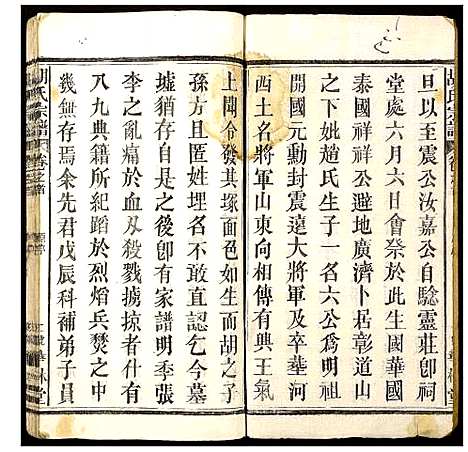 旦以至震公汝嘉公自騐靈莊卽祠
堂處六月六日會祭於此生國華國
泰國祥祥公避地廣濟卜居彰道山
之下妣趙氏生子一名六公爲明祖
開國元勳封震大將軍及卒葬河
西土名將軍山東向相傳有天王氣
上聞令發其塚面色如生而胡之子
孫方且匿姓埋名不敢直認乞今墓
墟猶存自是之後卽有家譜明季張
李之亂痛於血刃殺戮擄掠者什有
八九典籍所紀燬於烈熖兵燹之中
幾無存焉余先君戊辰科補弟子員
胡氏宗譜